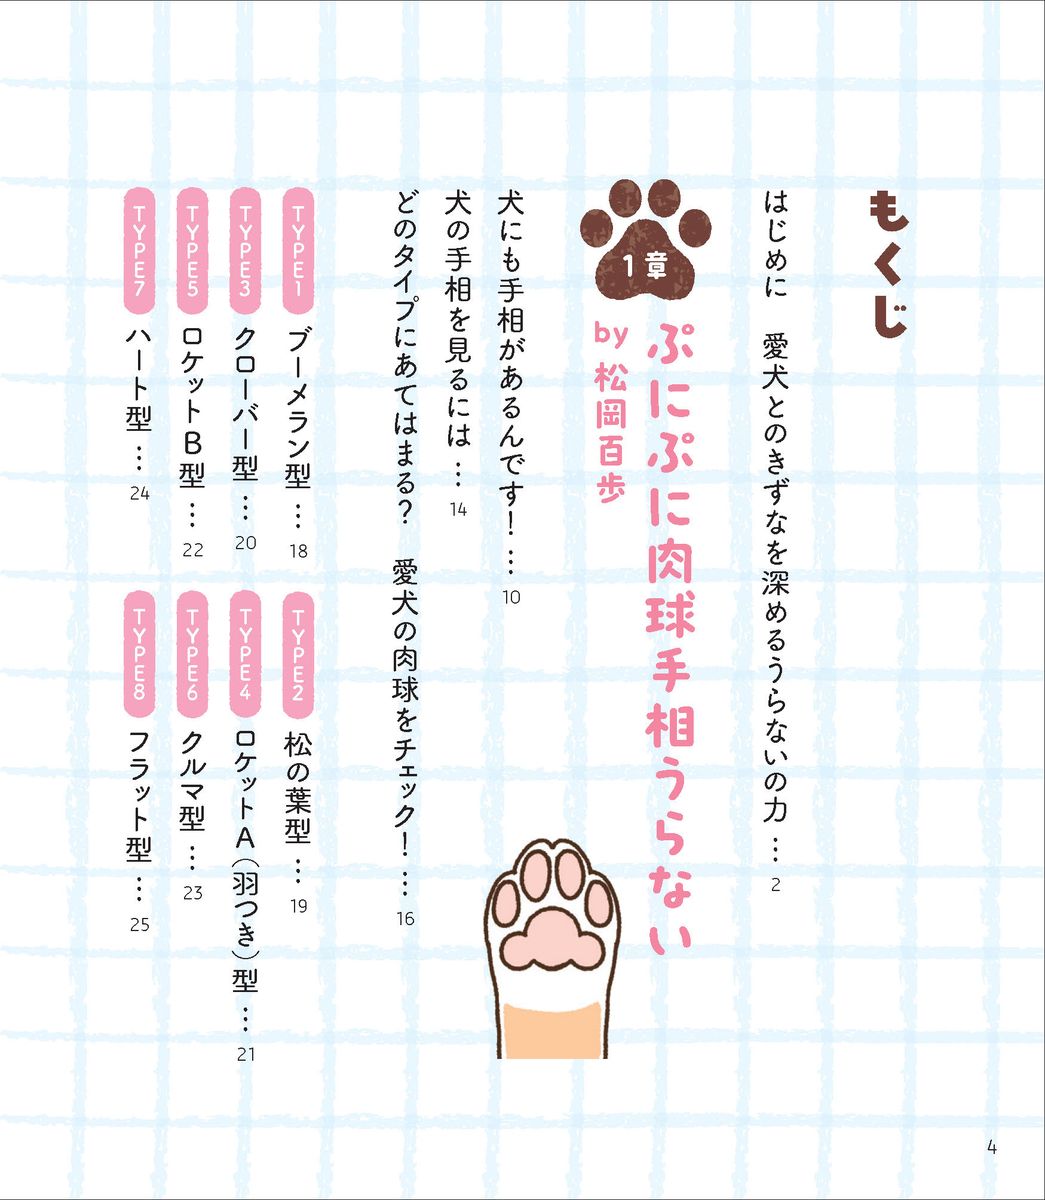 もくじ
はじめに　愛犬とのきずなを深めるうらないの力 … 2
1章
ぷにぷに肉球手相うらない
by 松岡百歩
犬にも手相があるんです！ … 10
犬の手相を見るには … 14
どのタイプにあてはまる？　愛犬の肉球をチェック！ … 16
TYPE1 ブーメラン型 … 18
TYPE2 松の葉型 … 19
TYPE3 クローバー型 … 20
TYPE4 ロケットA（羽つき）型 … 21
TYPE5 ロケットB型 … 22
TYPE6 クルマ型 … 23
TYPE7 ハート型 … 24
TYPE8 フラット型 … 25
4